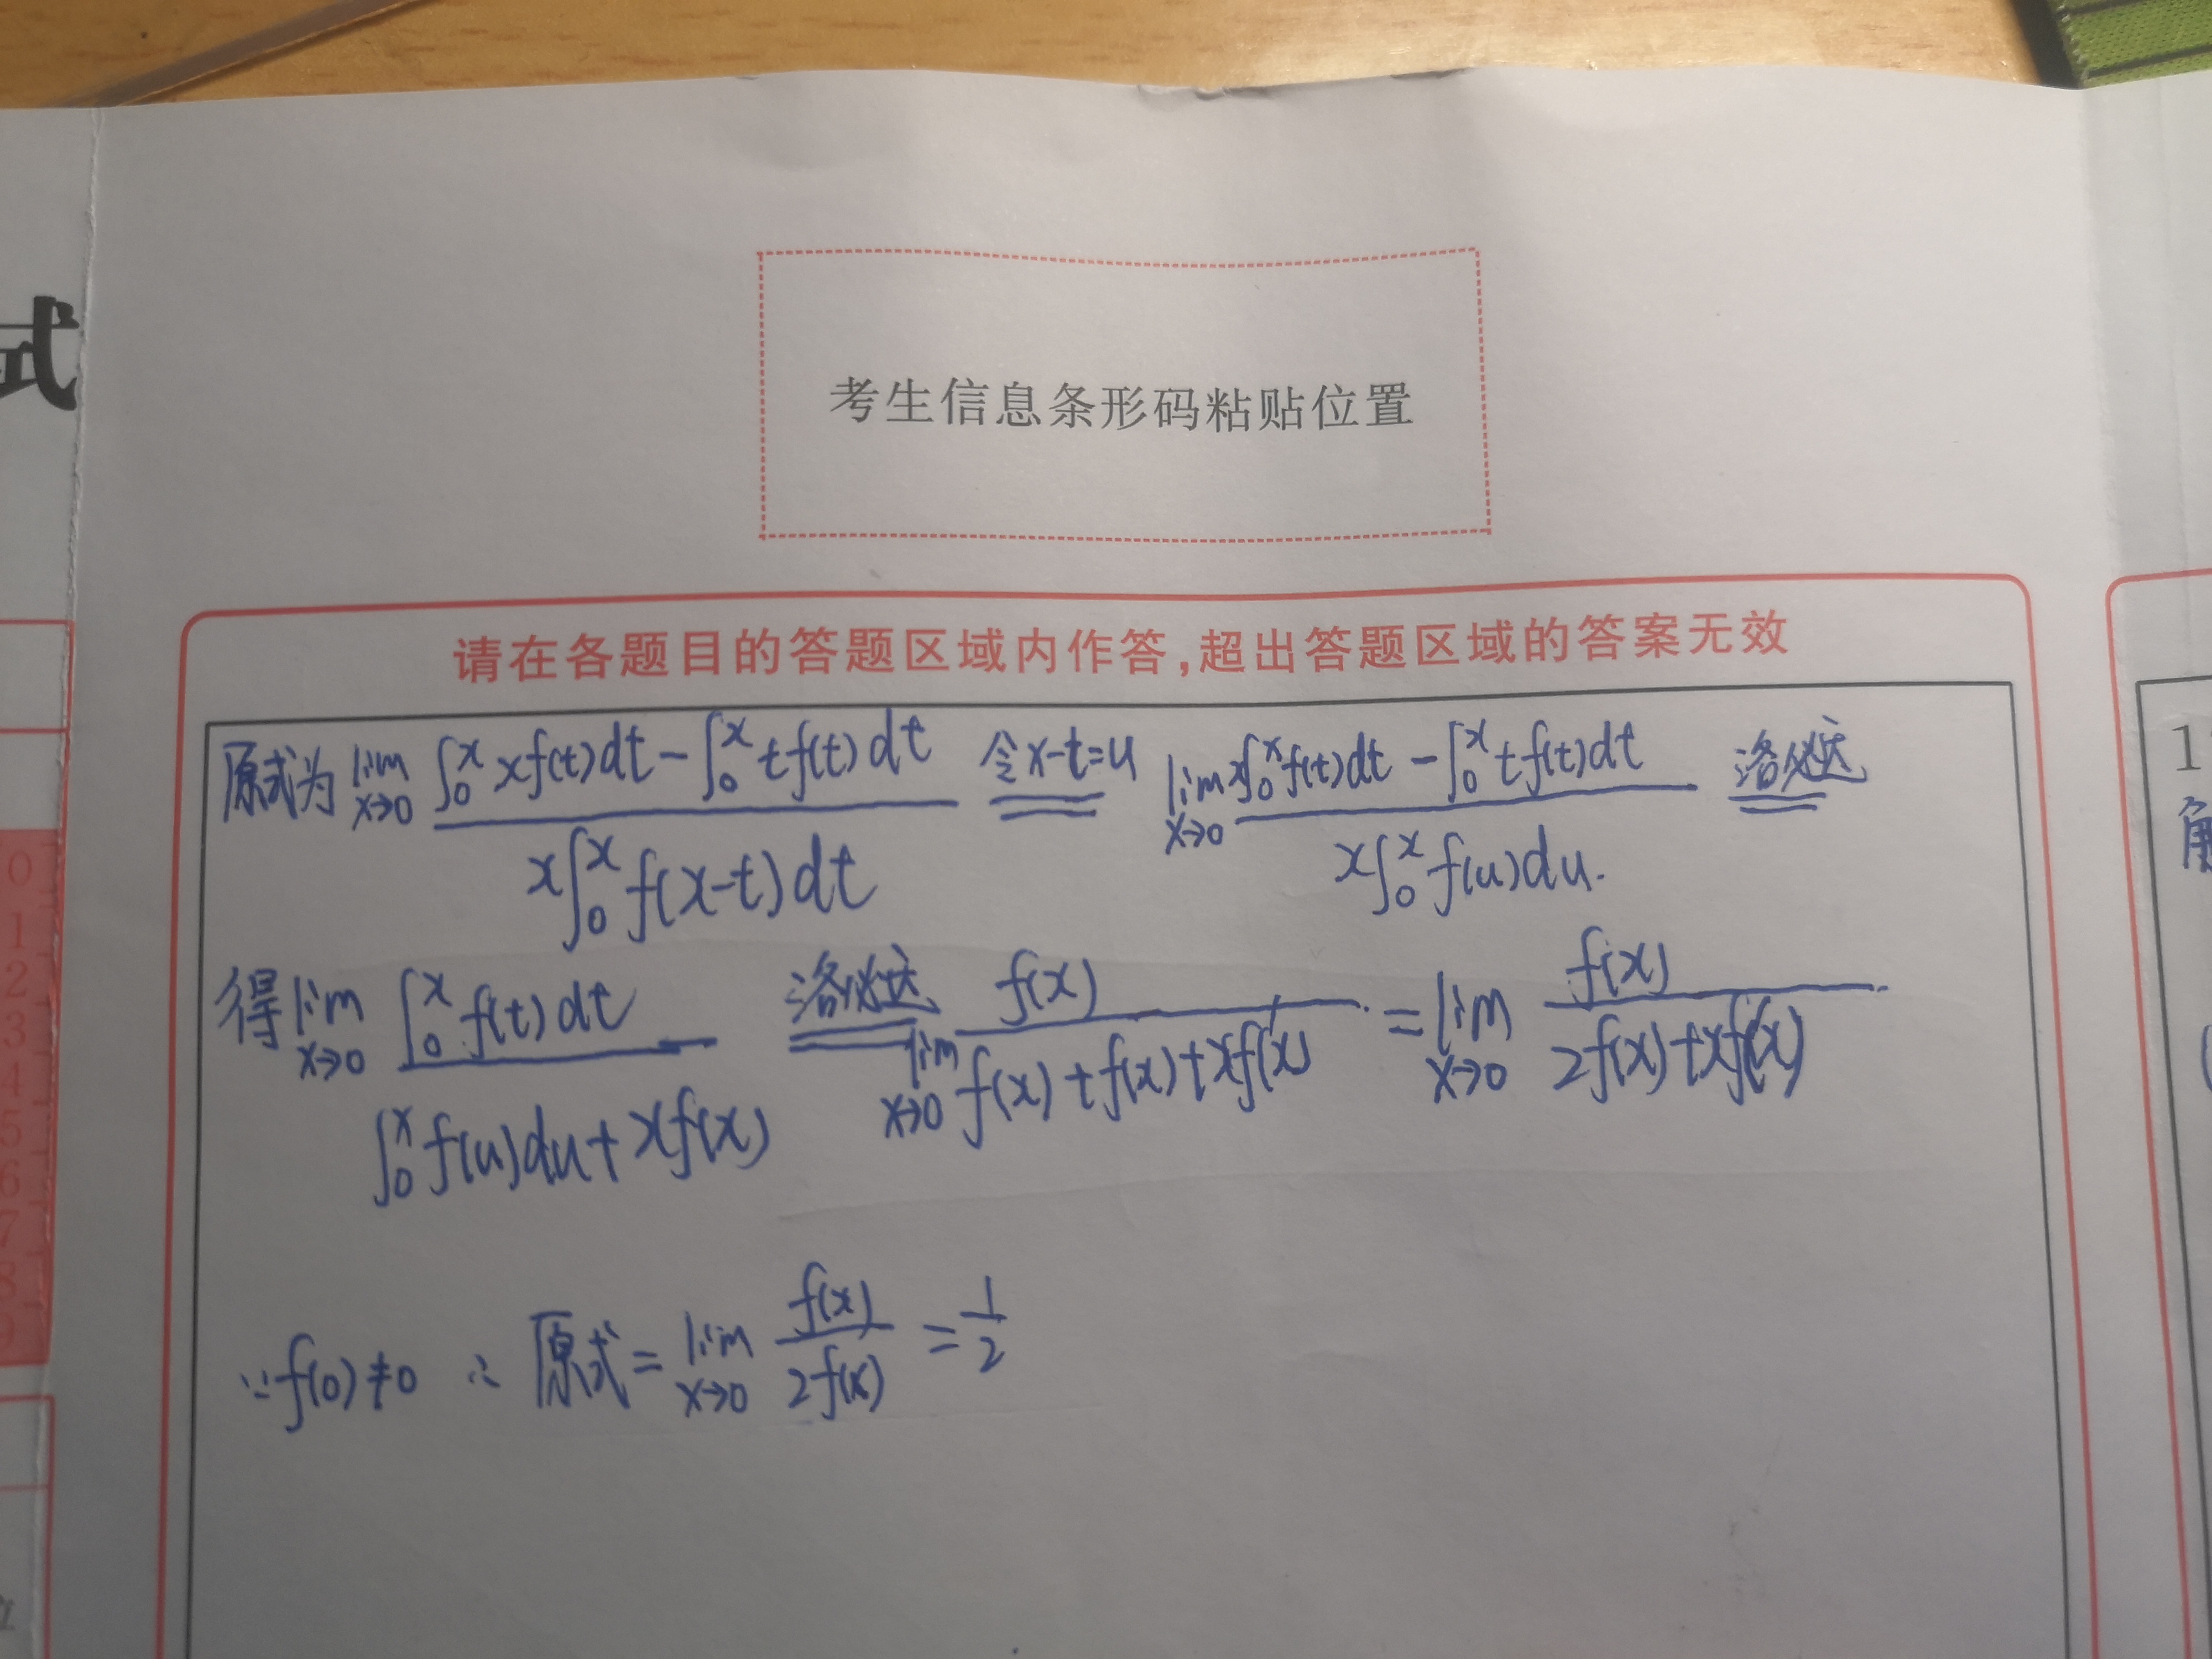 式
考生信息条形码粘贴位置
请在各题目的答题区域内作答,超出答题区域的答案无效
原式为 lim x→0 (∫₀ˣ xf(t)dt - ∫₀ˣ tf(t)dt) / (x∫₀ˣ f(x-t)dt) 令x-t=u == lim x→0 (x∫₀ˣ f(t)dt - ∫₀ˣ tf(t)dt) / (x∫₀ˣ f(u)du.) 洛必达 ==
得 lim x→0 (∫₀ˣ f(t)dt) / (∫₀ˣ f(u)du + xf(x)) 洛必达 == lim x→0 f(x) / (f(x)+f(x)+xf'(x)) = lim x→0 f(x) / (2f(x)+xf'(x))
∵f(0)≠0 ∴ 原式 = lim x→0 f(x) / 2f(x) = 1/2
0
1
2
3
4
5
6
7
8
9
1